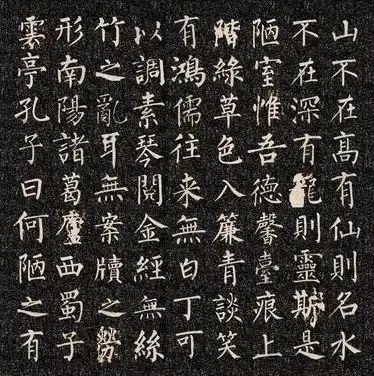 山不在高有仙則名水
不在深有龍則靈斯是
陋室惟吾德馨臺痕上
階綠草色入簾青談笑
有鴻儒往来無白丁可
以調素琴閱金經無絲
竹之亂耳無案牘之勞
形南陽諸葛廬西蜀子
雲亭孔子曰何陋之有